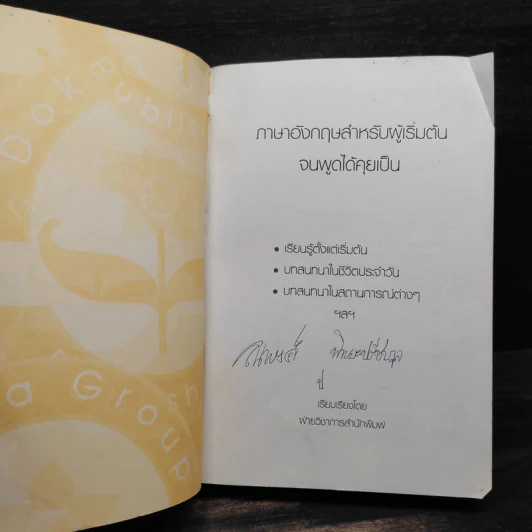 Dok
Publis
a Group
sh
ภาษาอังกฤษสำหรับผู้เริ่มต้น
จนพูดได้คุยเป็น
• เรียนรู้ตั้งแต่เริ่มต้น
• บทสนทนาในชีวิตประจำวัน
• บทสนทนาในสถานการณ์ต่างๆ
ฯลฯ
เรียบเรียงโดย
ฝ่ายวิชาการสำนักพิมพ์